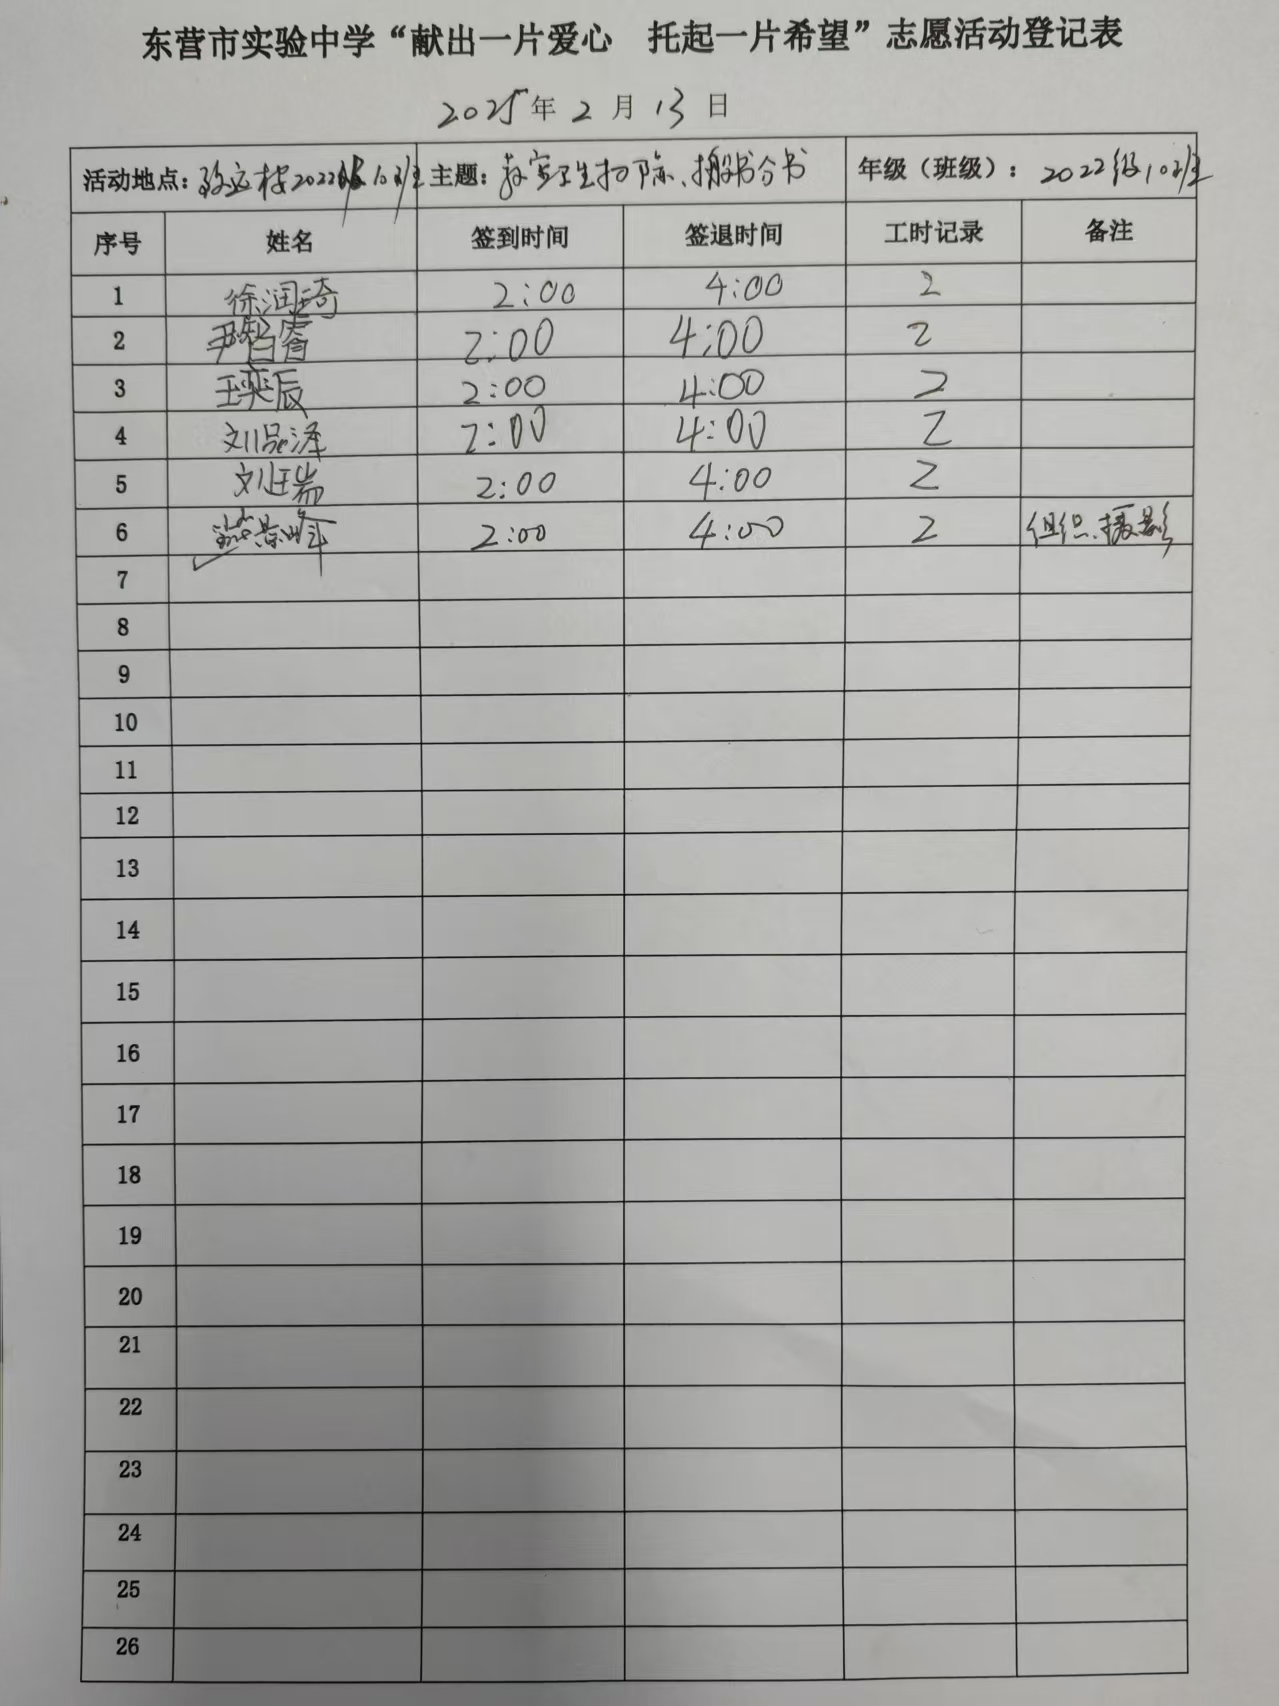 东营市实验中学“献出一片爱心 托起一片希望”志愿活动登记表
2025年2月13日
活动地点：致远楼2022级10班 主题：教室卫生扫除、搬书分书 年级（班级）：2022级10班
序号 姓名 签到时间 签退时间 工时记录 备注
1 徐润琦 2:00 4:00 2
2 尹智睿 2:00 4:00 2
3 王奕辰 2:00 4:00 2
4 刘品泽 2:00 4:00 2
5 刘珏瑞 2:00 4:00 2
6 2:00 4:00 2 组织、摄影
7
8
9
10
11
12
13
14
15
16
17
18
19
20
21
22
23
24
25
26